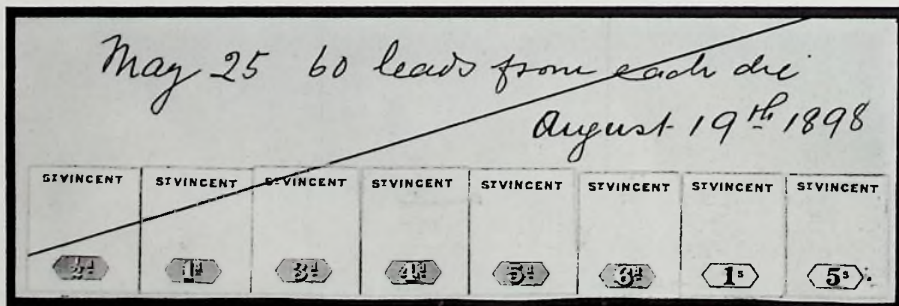 May 25 60 leads from each die
August 19th 1898
ST VINCENT ST VINCENT ST VINCENT ST VINCENT ST VINCENT ST VINCENT ST VINCENT ST VINCENT
½d 1d 3d 4d 5d 6d 1s 5s